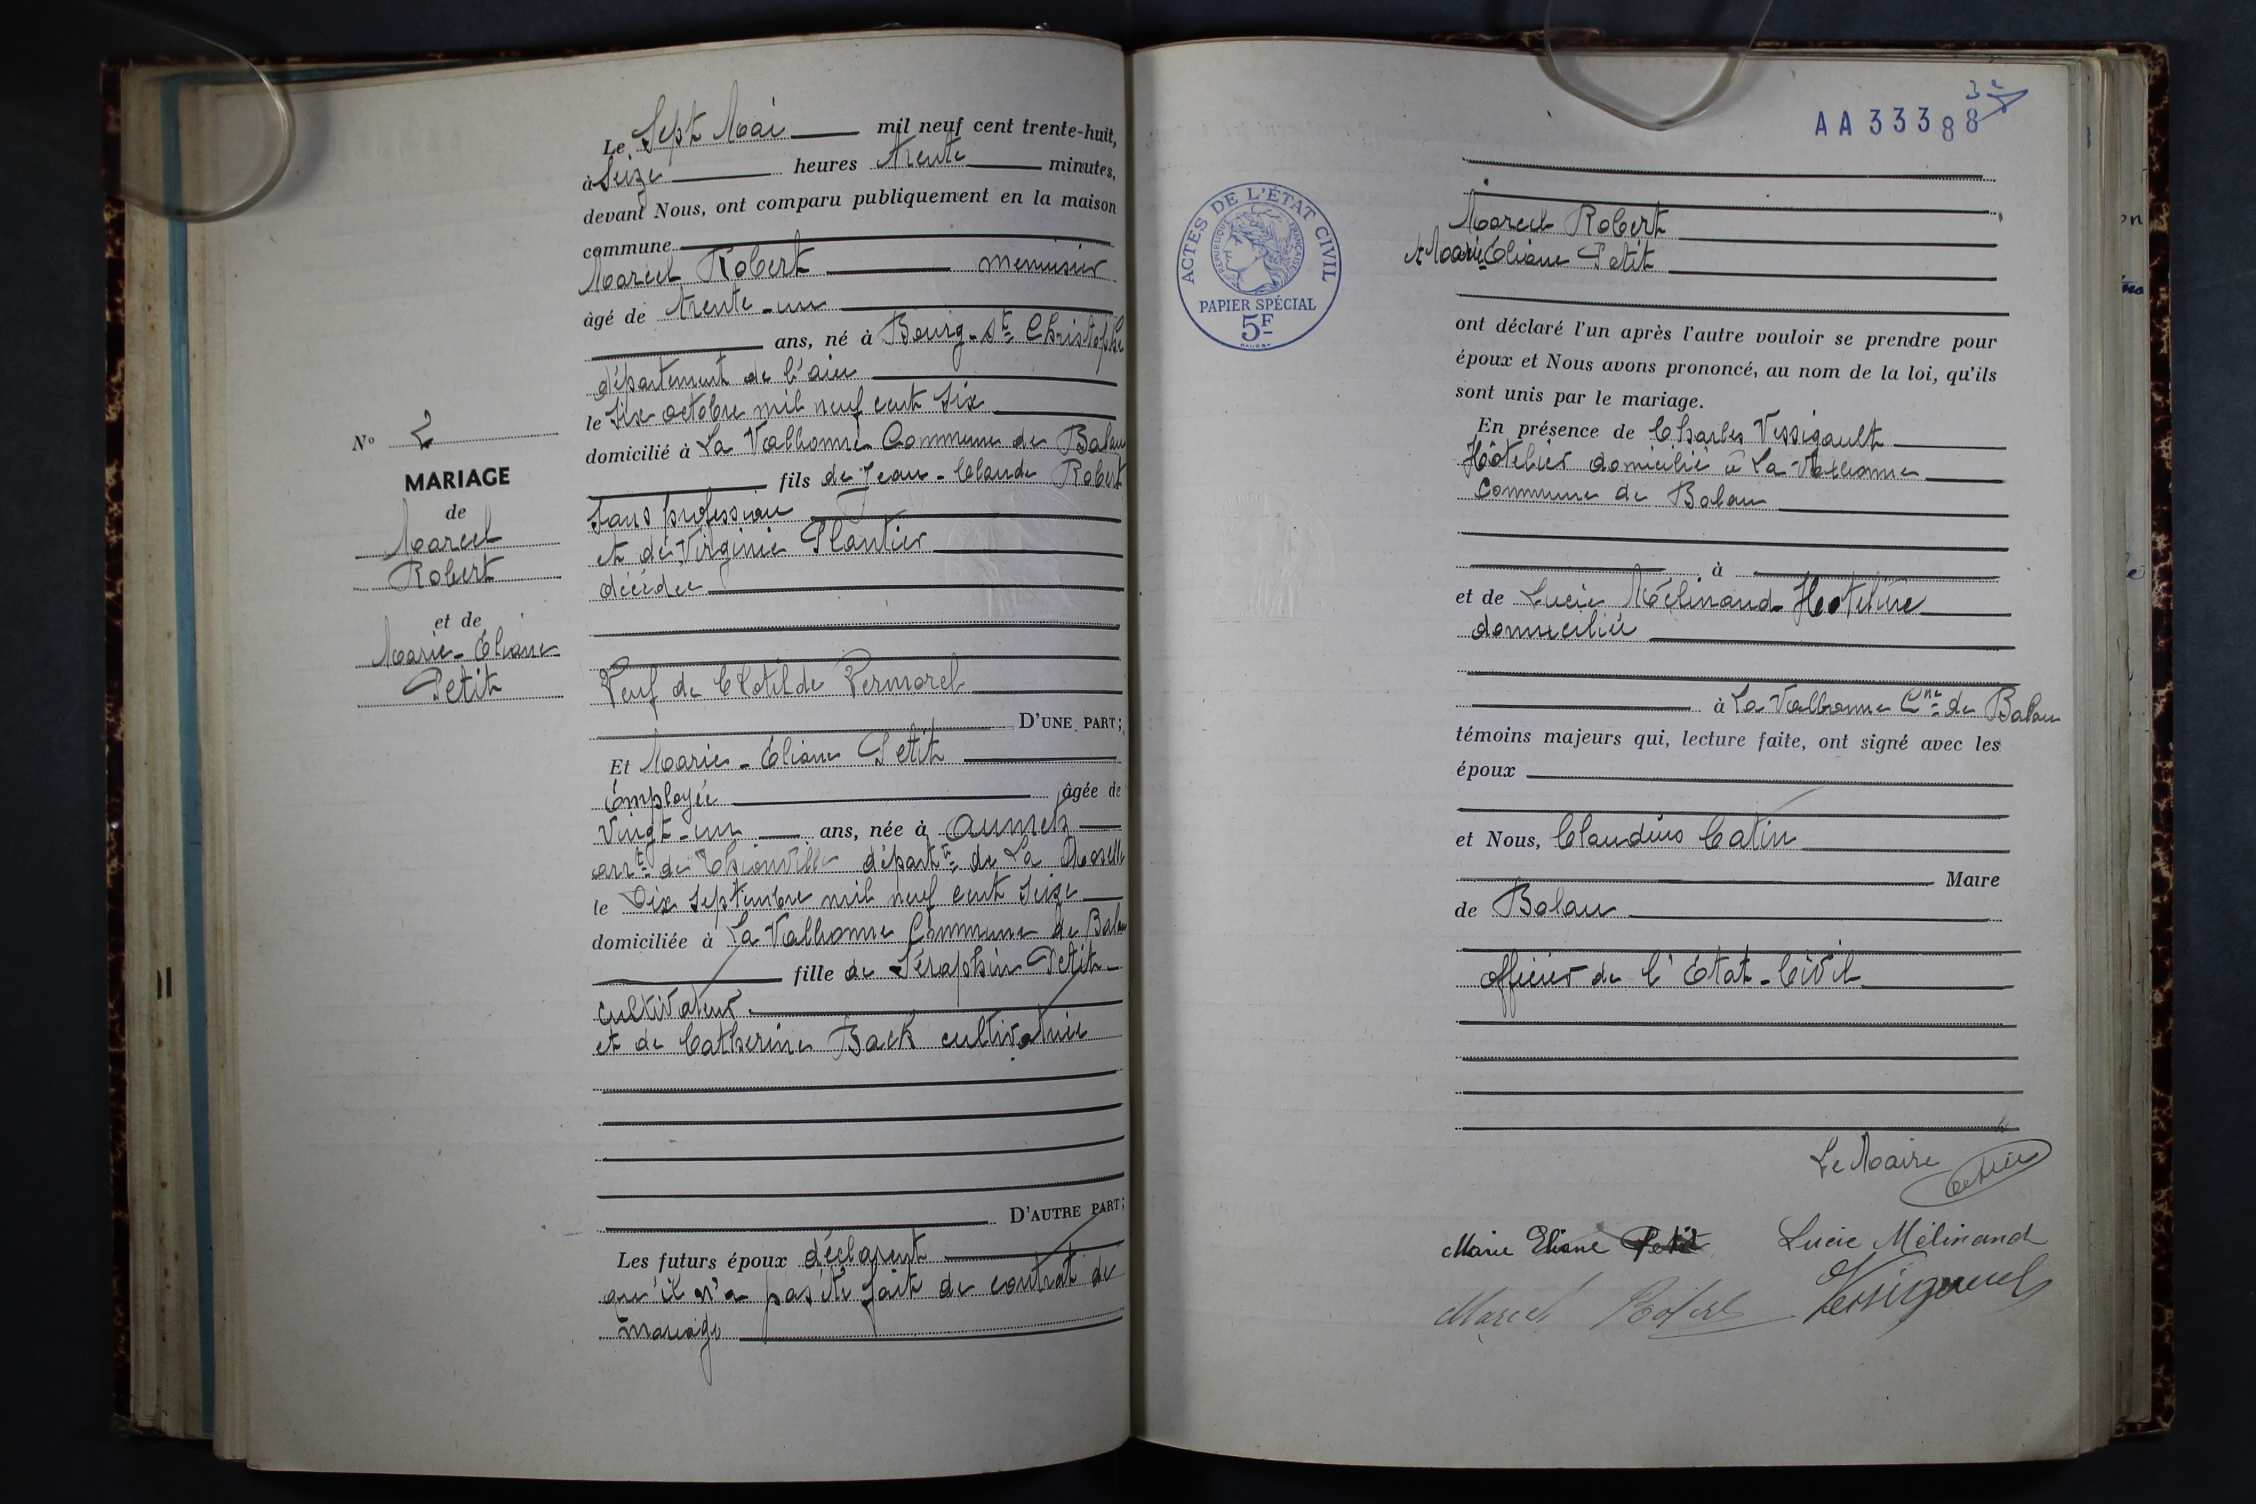 N° 2
MARIAGE
de
Marcel
Robert
et de
Marie-Eliane
Petit
Le Sept Mai mil neuf cent trente-huit,
à Seize heures trente minutes,
devant Nous, ont comparu publiquement en la maison
commune
Marcel Robert menuisier
âgé de trente-un
ans, né à Bourg-St Christophe
département de l'ain
le six octobre mil neuf cent six
domicilié à La Valbonne Commune de Balan
fils de Jean-Claude Robert
sans profession
et de Virginie Plantier
décédée
Veuf de Clotilde Permorel
D'UNE PART;
Et Marie-Eliane Petit
Employée âgée de
vingt-un ans, née à Aumetz
arrt de Thionville départt de La Moselle
le Dix septembre mil neuf cent seize
domiciliée à La Valbonne Commune de Balan
fille de Séraphin Petit
cultivateur
et de Catherine Back cultivatrice
D'AUTRE PART;
Les futurs époux déclarent
qu'il n'a pas été fait de contrat de
mariage
AA 33388
ACTES DE L'ÉTAT CIVIL
RÉPUBLIQUE FRANÇAISE
PAPIER SPÉCIAL
5F
Marcel Robert
et Marie-Eliane Petit
ont déclaré l'un après l'autre vouloir se prendre pour
époux et Nous avons prononcé, au nom de la loi, qu'ils
sont unis par le mariage.
En présence de Charles Vessigault
Hôtelier domicilié à La Valbonne
Commune de Balan
à
et de Lucie Mélinand Hotelière
domiciliée
à La Valbonne Cne de Balan
témoins majeurs qui, lecture faite, ont signé avec les
époux
et Nous, Claudius Catin
Maire
de Balan
officier de l'Etat-Civil
Le Maire
Catin
Marie Eliane Petit Lucie Mélinand
Marcel Robert